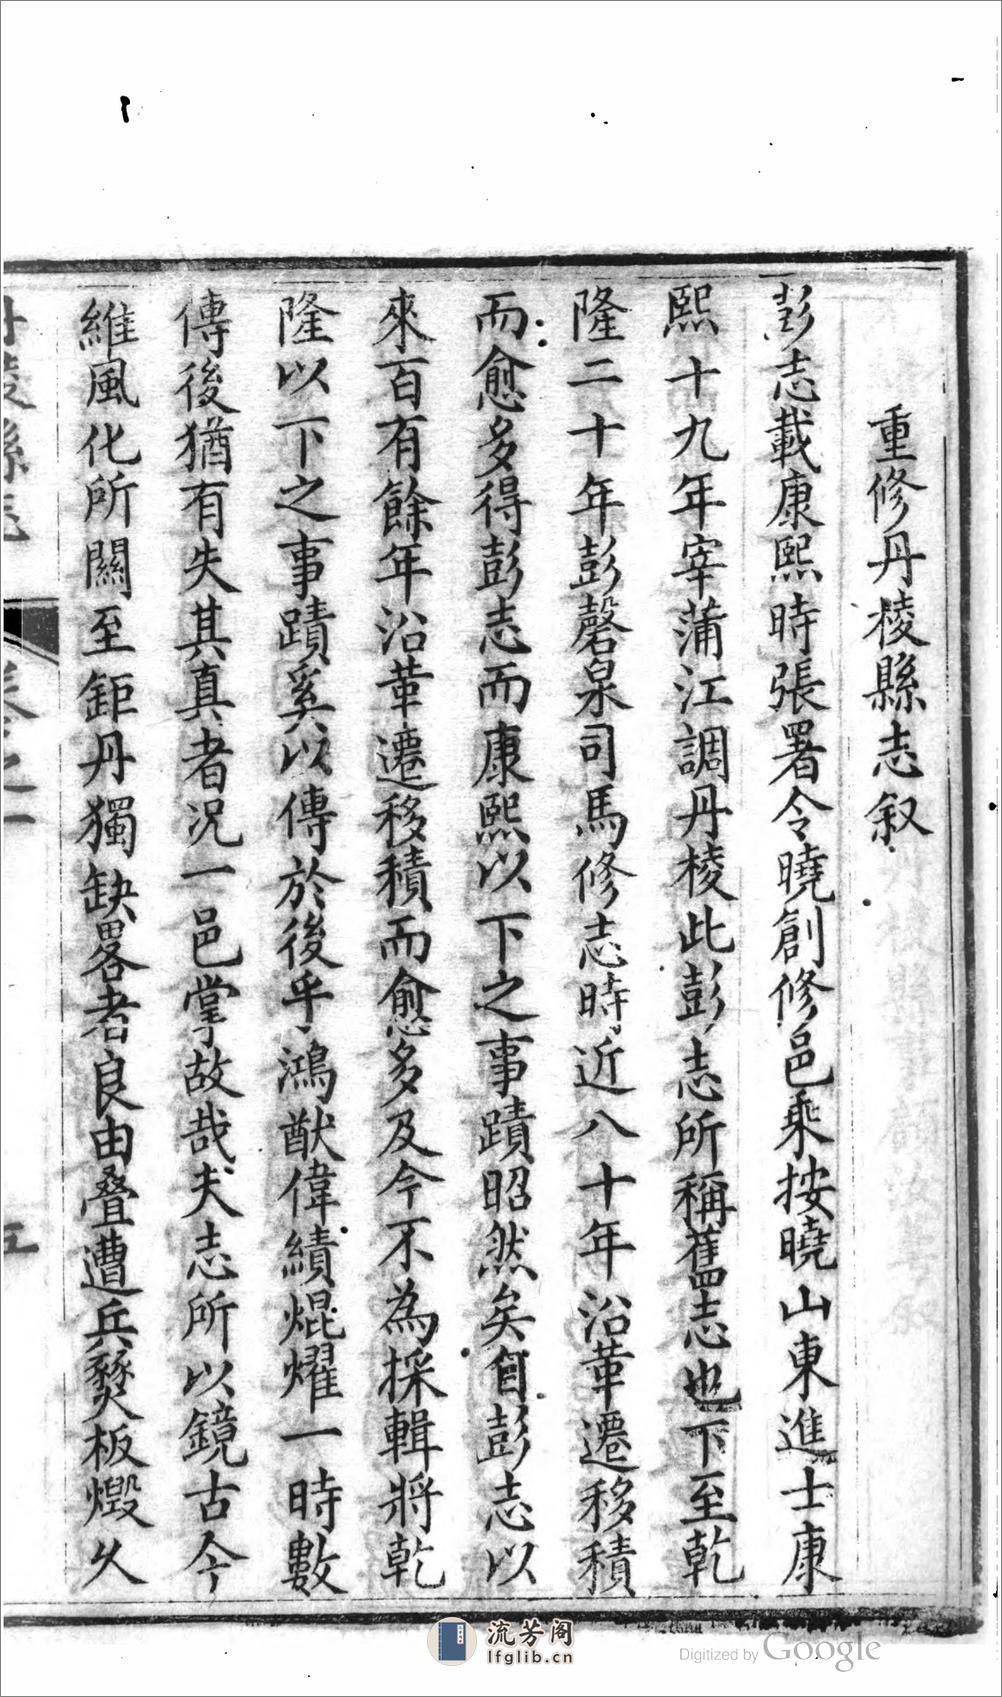 重修丹棱縣志叙
彭志載康熙時張署令曉創修邑乘按曉山東進士康
熙十九年宰蒲江調丹棱此彭志所稱舊志也下至乾
隆二十年彭磬泉司馬修志時近八十年沿革遷移積
而愈多得彭志而康熙以下之事蹟昭然矣自彭志以
來百有餘年沿革遷移積而愈多及今不為採輯將乾
隆以下之事蹟奚以傳於後乎鴻猷偉績焜燿一時數
傳後猶有失其真者况一邑掌故哉夫志所以鏡古今
維風化所關至鉅丹獨缺畧者良由叠遭兵燹板燬久
丹棱縣志
卷之一
五
流芳阁
lfglib.cn
Digitized by Google